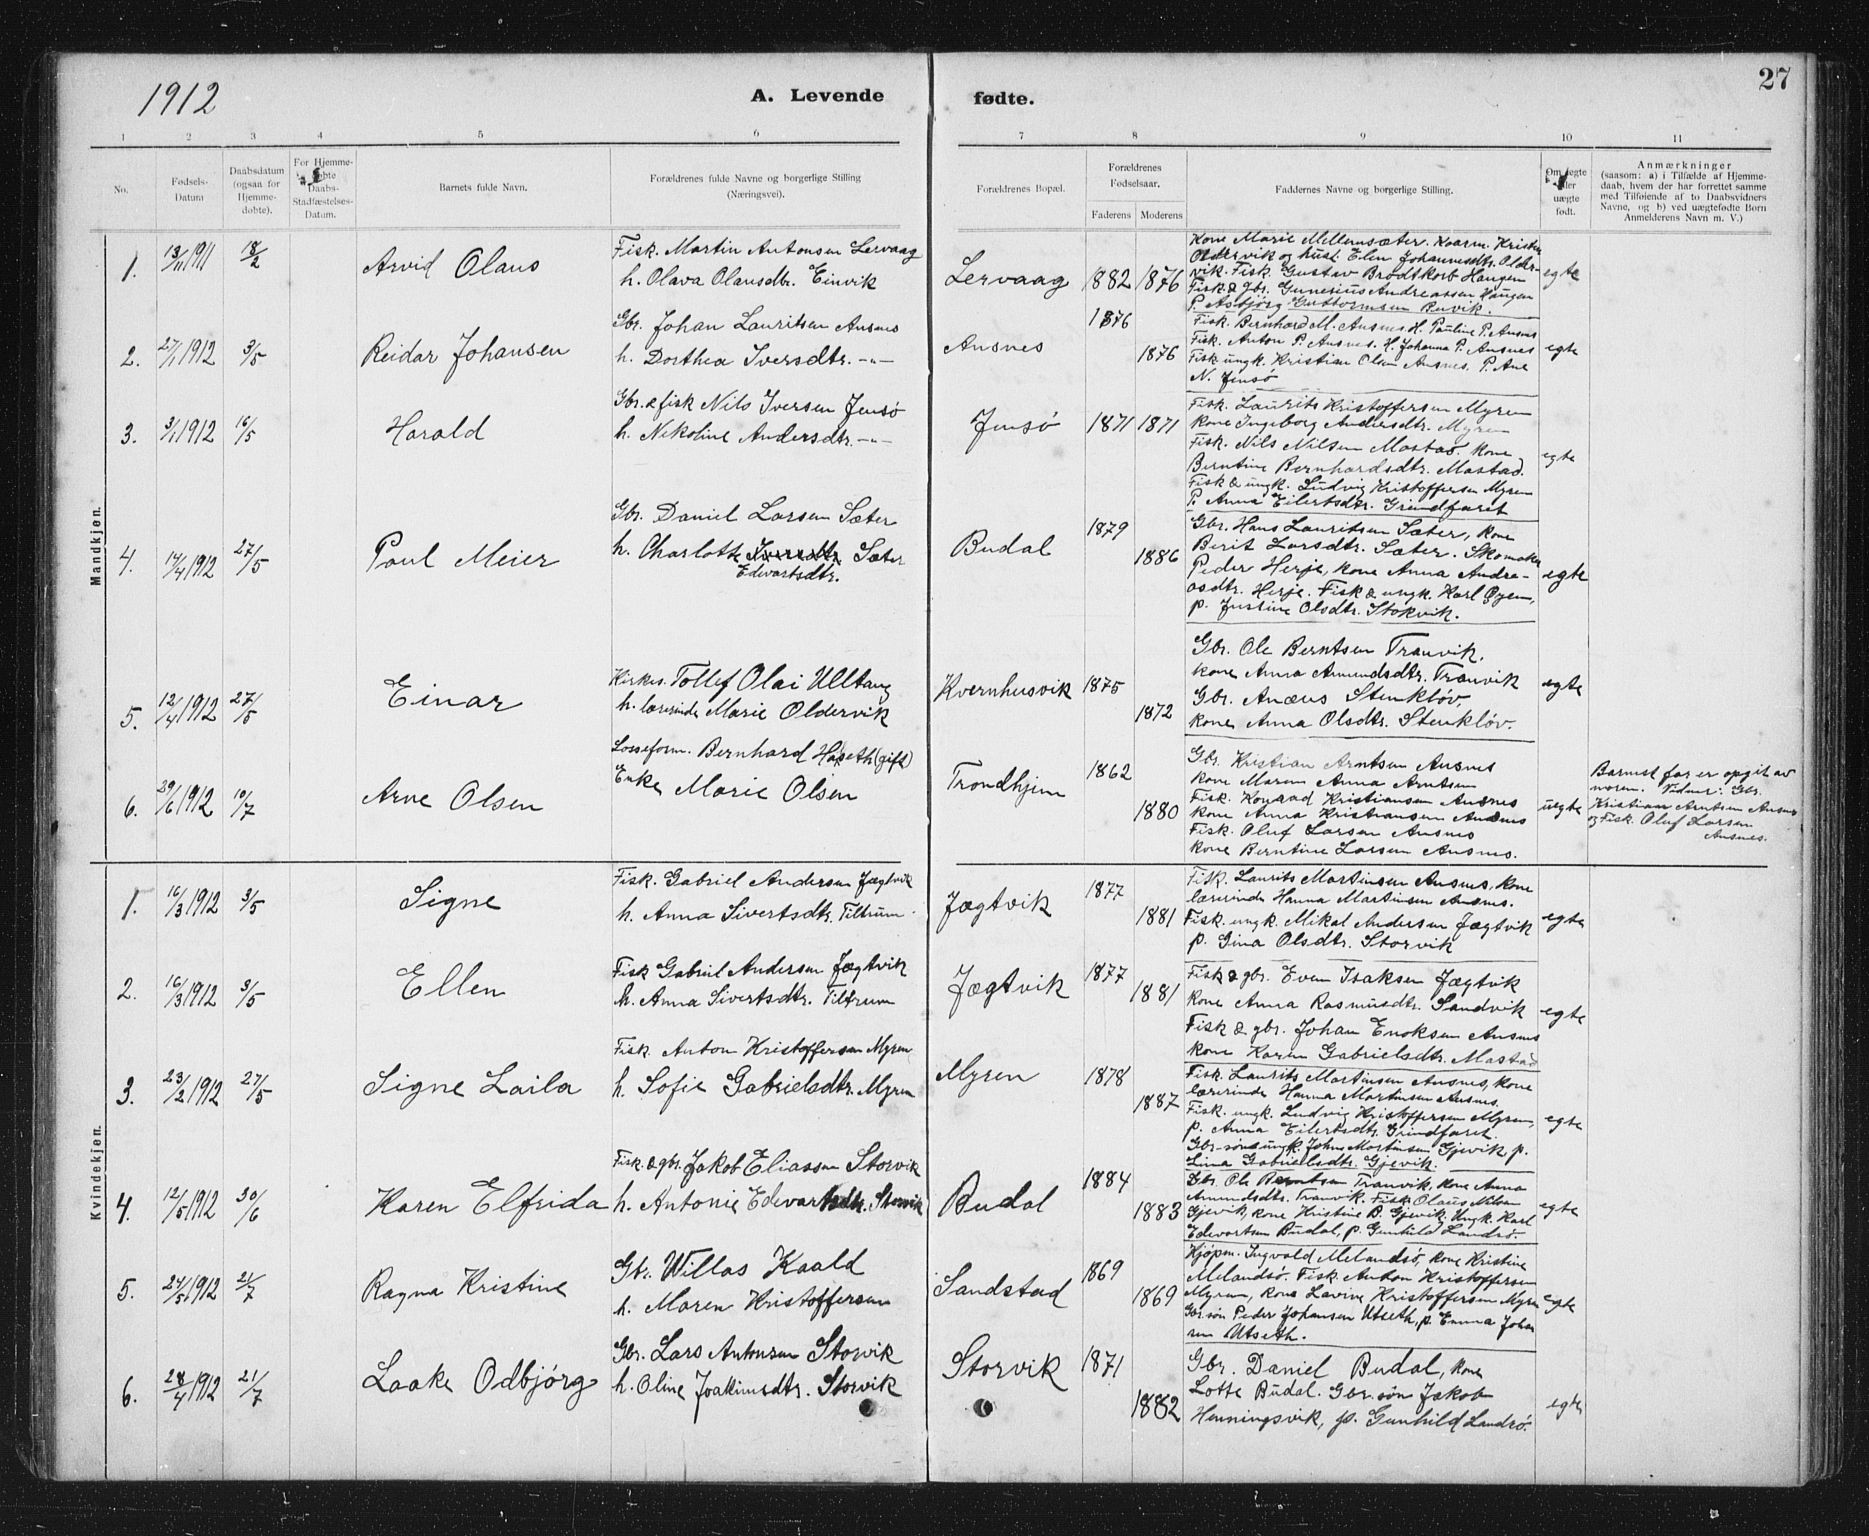 1912
A. Levende fødte.
27
1 2 3 4 5 6 7 8 9 10 11
No.
Fødsels-
Datum
Daabsdatum
(ogsaa for
Hjemme-
døbte).
For Hjemme-
døbte
Daabs-
Stadfæstelses-
Datum.
Barnets fulde Navn.
Forældrenes fulde Navne og borgerlige Stilling
(Næringsvei).
Forældrenes Bopæl.
Forældrenes
Fødselsaar.
Faderens Moderens
Faddernes Navne og borgerlige Stilling.
Om ægte
eller
uægte
født.
Anmærkninger
(saasom: a) i Tilfælde af Hjemme-
daab, hvem der har forrettet samme
med Tilføiende af to Daabsvidners
Navne, og b) ved uægtefødte Børn
Anmelderens Navn m. V.)
Mandkjøn.
1. 13/11 1911 18/2 Arvid Olaus
Fisk. Martin Antonsen Lervaag
h. Olava Olausdtr. Einvik
Lervaag 1882 1876
Kone Marie Mellemsæter. Kaarm. Kristian
Oldervik og hust. Elen Johannesdtr. Older-
vik. Fisk. Gustav Brodtkorb Haugen
Fisk & gbr. Gunerius Andreassen Haugen
P. Asbjørg Guttormsen Buvik.
egte
2. 27/1 1912 3/5 Reidar Johansen
Gbr. Johan Lauritsen Ansnes
h. Dorthea Iversdtr. -"-
Ansnes 1876 1876
Fisk. Bernhard M. Ansnes. H. Pauline P. Ansnes
Fisk. Anton P. Ansnes. H. Johanna P. Ansnes
Fisk ungk. Kristian Olsen Ansnes. P. Ane
N. Jensø
egte
3. 3/1 1912 16/5 Harald
Gbr. & fisk Nils Iversen Jensø
h. Nikoline Andersdtr. -"-
Jensø 1871 1871
Fisk. Laurits Kristoffersen Myren
kone Ingeborg Andersdtr. Myren
Fisk. Nils Nilsen Mastad. kone
Berntine Bernhardsdtr. Mastad.
Fisk & ungk. Ludvig Kristoffersen Myren
P. Anna Eilertsdtr. Grindfaret
egte
4. 14/4 1912 27/5 Paul Meier
Gbr. Daniel Larsen Sæter
h. Charlotte Iversdtr. Sæter
Edvartsdtr.
Budal 1879 1886
Gbr. Hans Lauritsen Sæter, kone
Berit Larsdtr. Sæter. Skomaker
Peder Herje, kone Anna Andre-
asdtr. Herje. Fisk & ungk. Karl Øyen,
p. Justine Olsdtr. Stokvik.
egte
5. 12/4 1912 27/5 Einar
Kirkes. Tollef Olai Ulltang
h. lærerinde Marie Oldervik
Kvernhusvik 1875 1872
Gbr. Ole Berntsen Tranvik,
kone Anna Amundsdtr. Tranvik
Gbr. Anæus Stenkløv,
kone Anna Olsdtr. Stenkløv.
egte
6. 29/6 1912 10/7 Arne Olsen
Losseform. Bernhard Haseth (gift)
Enke Marie Olsen
Trondhjem 1862 1880
Gbr. Kristian Arntsen Ansnes
kone Maren Anna Arntsen
Fisk. Konrad Kristiansen Ansnes
kone Anna Kristiansen Ansnes
Fisk. Oluf Larsen Ansnes
kone Berntine Larsen Ansnes.
uegte
Barnest far er opgit av
moren. Vidner: Gbr.
Kristian Arntsen Ansnes
og Fisk. Oluf Larsen
Ansnes.
Kvindekjøn.
1. 16/3 1912 3/5 Signe
Fisk. Gabriel Andersen Jægtvik
h. Anna Sivertsdtr. Tiltrum.
Jægtvik 1877 1881
Fisk. Laurits Martinsen Ansnes, kone
lærerinde Hanna Martinsen Ansnes.
Fisk. ungk. Mikal Andersen Jægtvik
p. Gina Olsdtr. Storvik
egte
2. 16/3 1912 3/5 Ellen
Fisk Gabriel Andersen Jægtvik
h. Anna Sivertsdtr. Tiltrum
Jægtvik 1877 1881
Fisk & gbr. Even Isaksen Jægtvik
kone Anna Rasmusdtr. Sandvik
Fisk & gbr. Johan Enoksen Ansnes
kone Karen Gabrielsdtr. Mastad
egte
3. 23/2 1912 27/5 Signe Laila
Fisk. Anton Kristoffersen Myren
h. Sofie Gabrielsdtr. Myren
Myren 1878 1887
Fisk. Laurits Martinsen Ansnes, kone
lærerinde Hanna Martinsen Ansnes.
Fisk. ungk. Ludvig Kristoffersen Myren,
p. Anna Eilertsdtr. Grindfaret.
Gbr-søn & ungk. Johan Martinsen Gjevik p.
Lina Gabrielsdtr. Gjevik.
egte
4. 12/5 1912 30/6 Karen Elfrida
Fisk. & gbr. Jakob Eliassen Storvik
h. Antonie Edvartsdtr. Storvik
Budal 1884 1883
Gbr. Ole Berntsen Tranvik, kone Anna
Amundsdtr. Tranvik. Fisk. Olaus Nilsen
Gjevik, kone Kristine B. Gjevik, Ungk. Karl
Edevartsen Budal, p. Gunhild Landrø.
egte
5. 24/5 1912 21/7 Ragna Kristine
Gbr. Willas Kaald
h. Maren Kristoffersen
Sandstad 1869 1869
Kjøpm. Ingvald Melandsø, kone Kristine
Melandsø. Fisk. Anton Kristoffersen
Myren, kone Lavine Kristoffersen Myren
Gbr søn Peder Johansen Utseth, p. Emma Johan
sen Utseth.
egte
6. 28/4 1912 21/7 Laake Odbjørg
Gbr. Lars Antonsen Storvik
h. Oline Joakimsdtr. Storvik
Storvik 1871 1882
Gbr. Daniel Budal, kone
Lotte Budal. Gbr. søn Jakob
Henningsvik, p. Gunhild Landrø.
egte